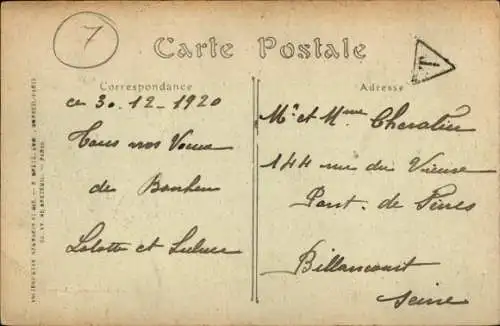 7
Carte Postale
T
Correspondance
Adresse
ce 30-12-1920
Tous nos Voeux
de Bonheur
Lolotte et
Mr et Mme Chevalier
144 rue du Vieux
Pont. de Sèvres
Billancourt
Seine